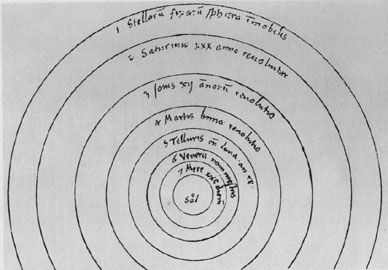 1 Stellarū fixarū sphæra īmobilis
2 Saturnus xxx anno revolvitur
3 Jovis xij añorū revolutio
4 Martis bima revolutio
5 Telluris
6 Veneris nonimestris
7 Merc
Sol